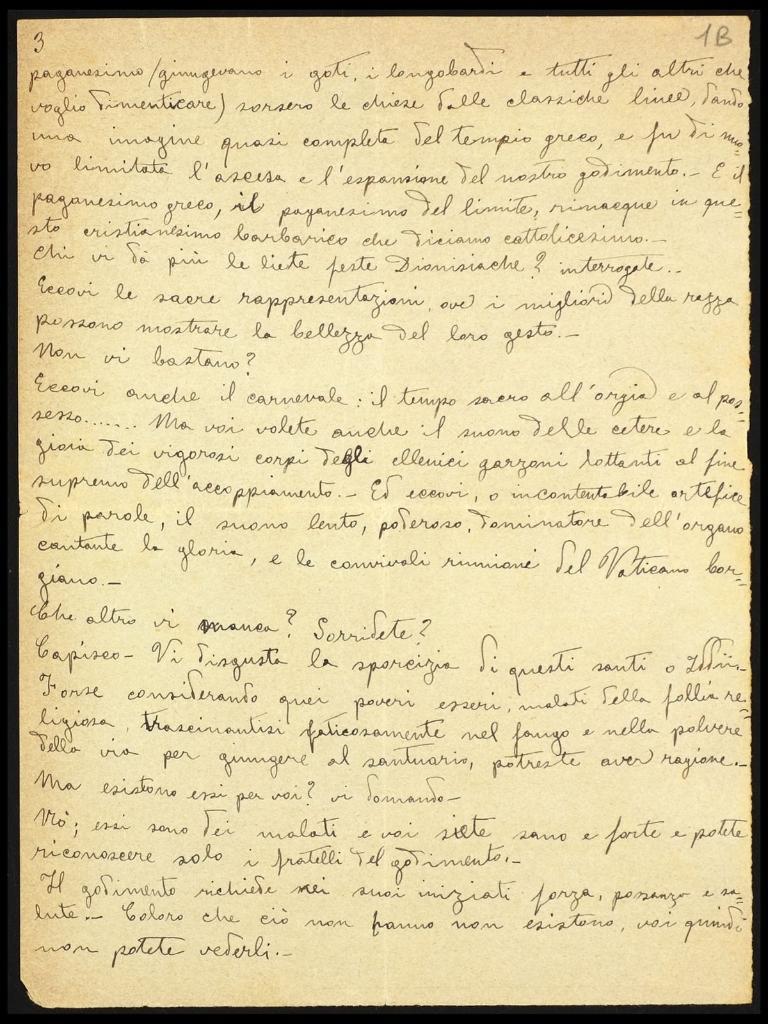 3
1B
paganesimo (giungevano i goti, i longobardi e tutti gli altri che
voglio dimenticare) sorsero le chiese dalle classiche linee, dando
una imagine quasi completa del tempio greco, e fu di nuo=
vo limitata l'ascesa e l'espansione del nostro godimento.— E il
paganesimo greco, il paganesimo del limite, rinacque in que=
sto cristianesimo barbarico che diciamo cattolicesimo.—
Chi vi dà più le liete feste Dionisiache? interrogate..
Eccovi le sacre rappresentazioni, ove i migliori della razza
possono mostrare la bellezza del loro gesto.—
Non vi bastano?
Eccovi anche il carnevale: il tempo sacro all'orgia e al pos=
sesso....... Ma voi volete anche il suono delle cetere e la
gioia dei vigorosi corpi degli ellenici garzoni lottanti al fine
supremo dell'accoppiamento.— Ed eccovi, o incontentabile artefice
di parole, il suono lento, poderoso, dominatore dell'organo
cantante la gloria, e le conviviali riunioni del Vaticano bor=
giano.—
Che altro vi manca? Sorridete?
Capisco— Vi disgusta la sporcizia di questi santi o Iddii—
Forse considerando quei poveri esseri, malati della follia re=
ligiosa, trascinantisi faticosamente nel fango e nella polvere
della via per giungere al santuario, potreste aver ragione.—
Ma esistono essi per voi? vi domando—
No; essi sono dei malati e voi siete sano e forte e potete
riconoscere solo i fratelli del godimento.—
Il godimento richiede nei suoi iniziati forza, possanza e sa=
lute.— Coloro che ciò non hanno non esistono, voi quindi
non potete vederli.—